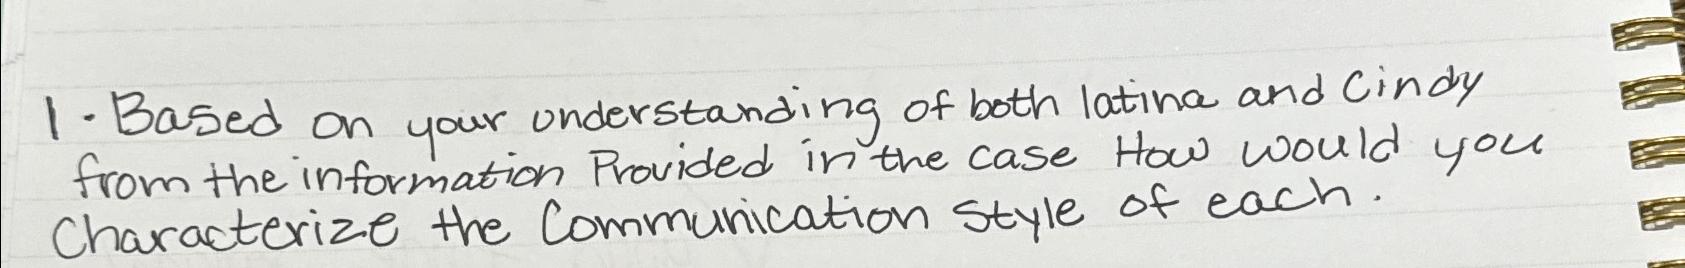 1. Based on your understanding of both latina and Cindy
from the information Provided in the case How would you
Characterize the Communication Style of each.